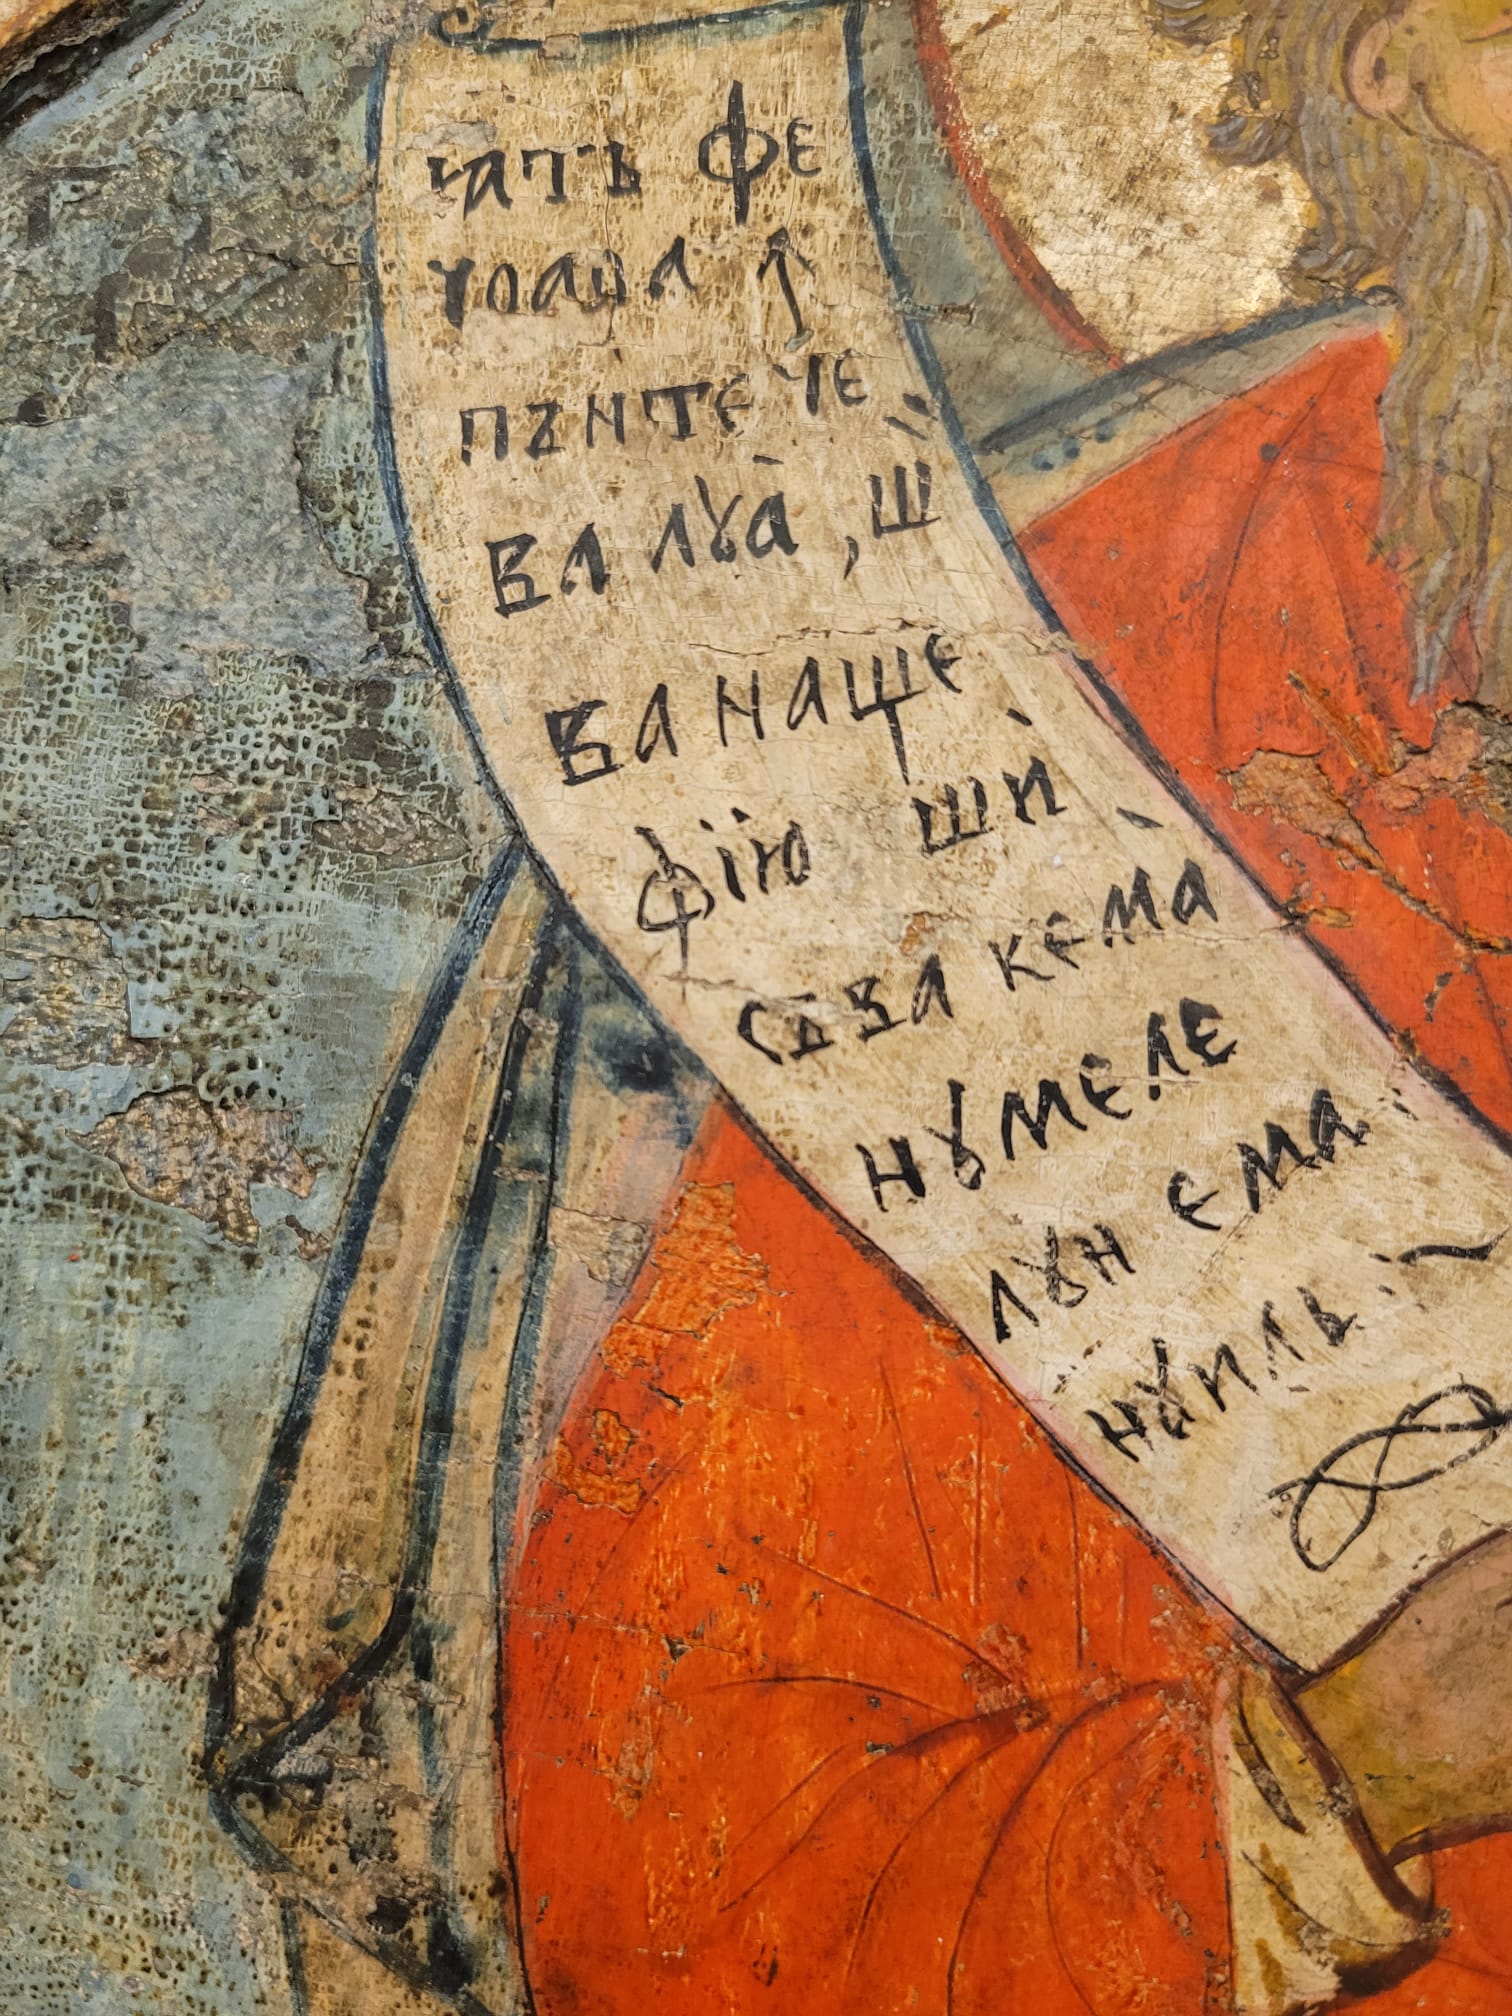 ꙗтъ фе
чоара ꙟ
пѫнтече
ва лꙋа , ши
ва наще
фїю ши
съва кема
нꙋмеле
лꙋи ема
нꙋиль